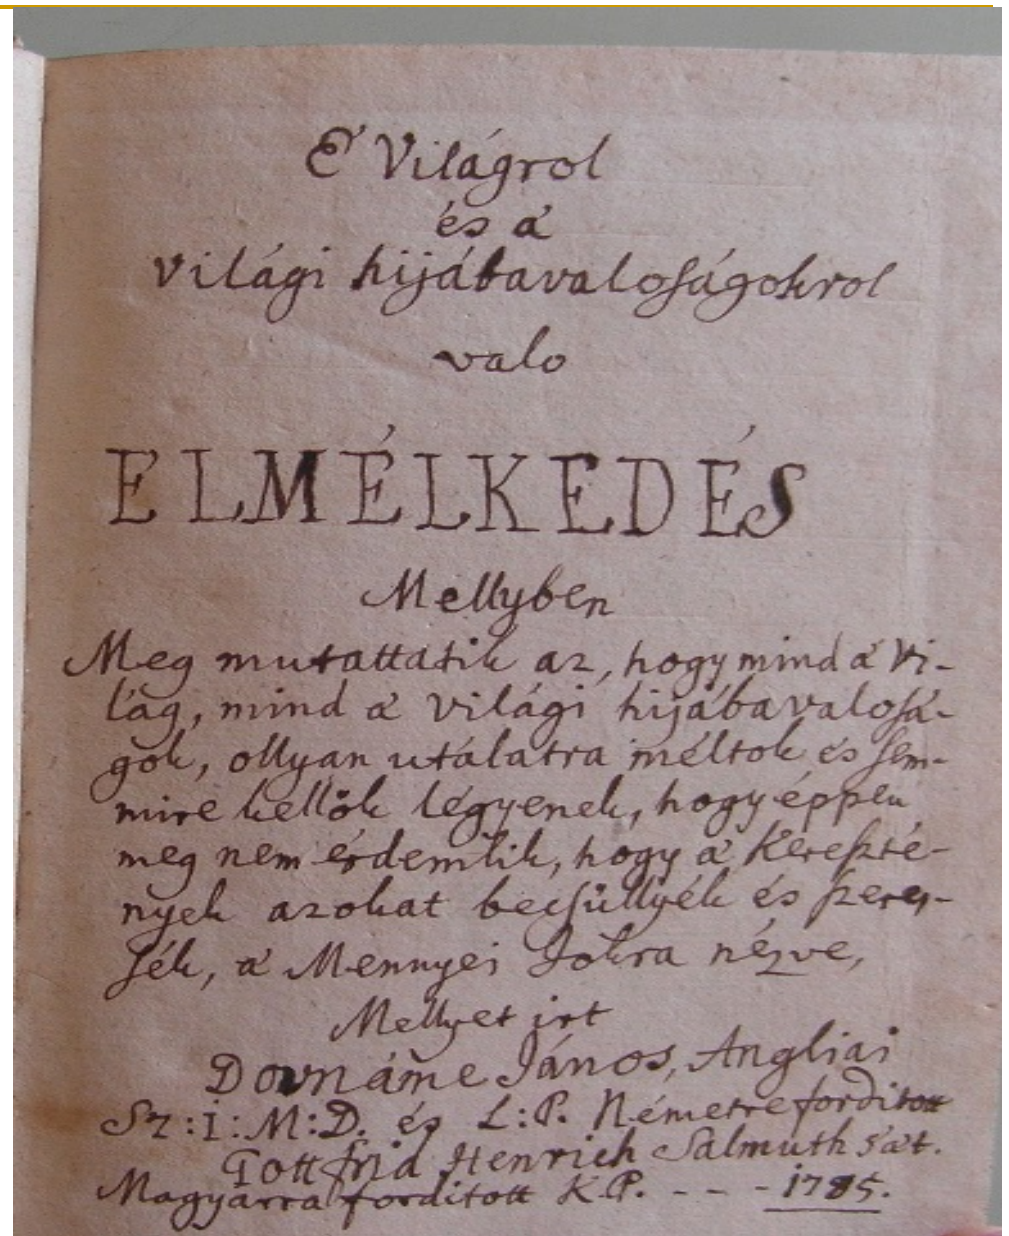 É Világrol
és á
világi hijábavaloságokrol
valo
ELMÉLKEDÉS
Mellyben
Meg mutattatik az, hogy mind á vi-
lág, mind á világi hijábavalosá-
gok, ollyan utálatra méltok és sem-
mire kellők légyenek, hogy éppen
meg nem érdemlik, hogy á Kereszté-
nyek azokat becsüllyék és szeres-
sék, á Mennyei Jokra nézve,
Mellyet irt
Dovnáme János, Angliai
Sz:I:M:D. és L:P. Németre forditott
Gottfrid Henrich Salmuth
Magyarra forditott K.P. - - - 1785.